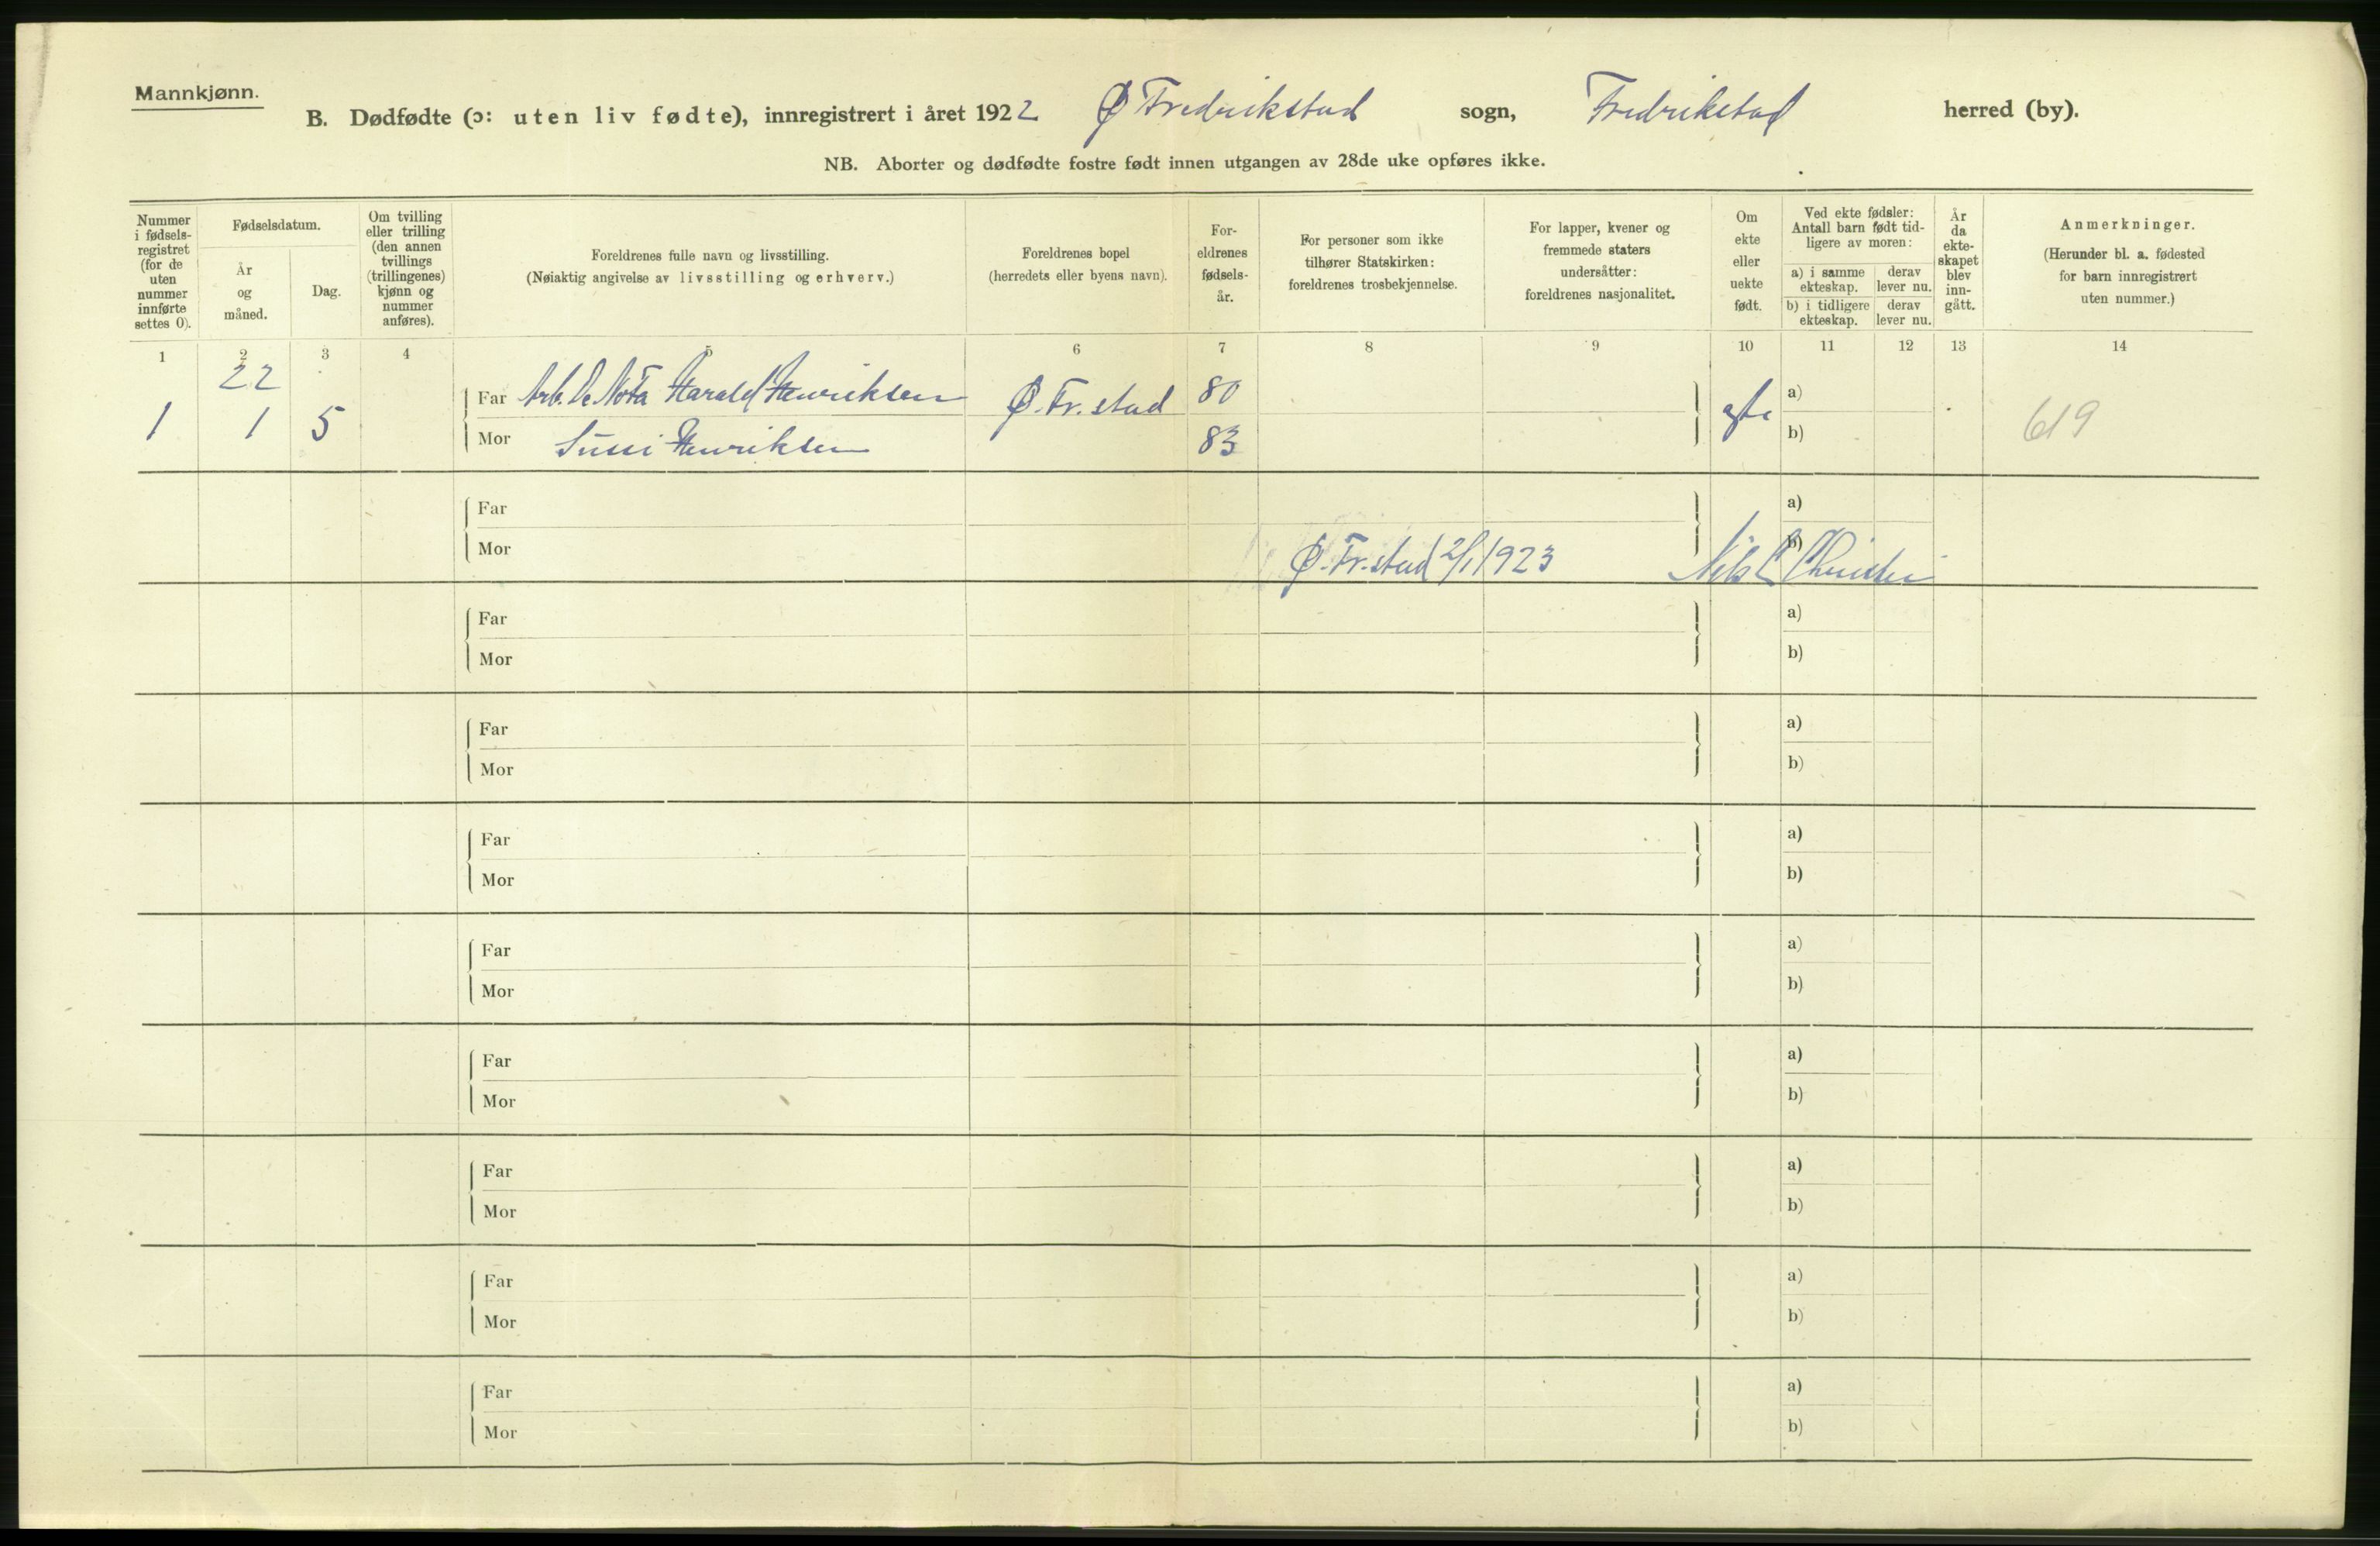 Mannkjønn.
B. Dødfødte (ɔ: uten liv fødte), innregistrert i året 1922 Ø Fredrikstad sogn, Fredrikstad herred (by).
NB. Aborter og dødfødte fostre født innen utgangen av 28de uke opføres ikke.
Nummer i fødsels-registret (for de uten nummer innførte settes 0).
Fødselsdatum.
År og måned.
Dag.
Om tvilling eller trilling (den annen tvillings (trillingenes) kjønn og nummer anføres).
Foreldrenes fulle navn og livsstilling.
(Nøiaktig angivelse av livsstilling og erhverv.)
Foreldrenes bopel
(herredets eller byens navn).
For-eldrenes fødsels-år.
For personer som ikke tilhører Statskirken: foreldrenes trosbekjennelse.
For lapper, kvener og fremmede staters undersåtter: foreldrenes nasjonalitet.
Om ekte eller uekte født.
Ved ekte fødsler: Antall barn født tid-ligere av moren:
a) i samme ekteskap.
derav lever nu.
b) i tidligere ekteskap.
derav lever nu.
År da ekte-skapet blev inn-gått.
Anmerkninger.
(Herunder bl. a. fødested for barn innregistrert uten nummer.)
1 2 3 4 5 6 7 8 9 10 11 12 13 14
22
Far Arb. Harald Henriksen Ø. Fr.stad 80 a)
1 1 5 ægte 619
Mor Sussi Henriksen 83 b)
Far a)
Mor b)
Ø. Fr.stad 2/1 1923 Nils C Christie
Far a)
Mor b)
Far a)
Mor b)
Far a)
Mor b)
Far a)
Mor b)
Far a)
Mor b)
Far a)
Mor b)
Far a)
Mor b)
Far a)
Mor b)